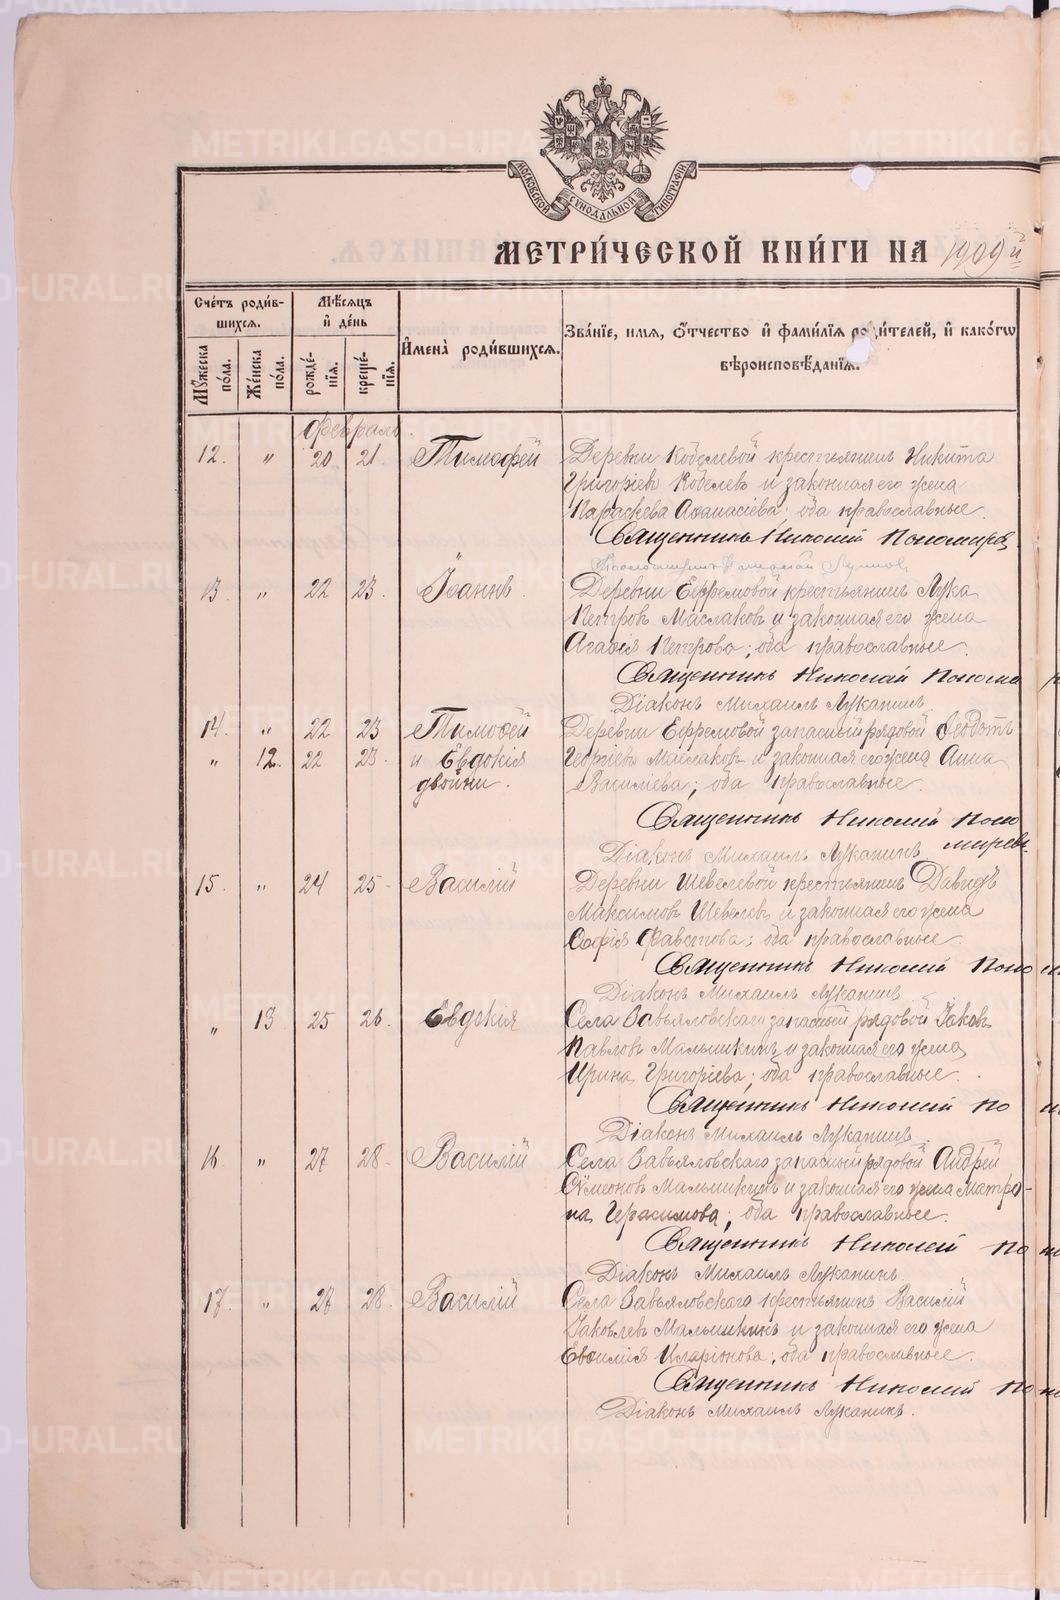 МОСКОВСКОЙ СУНОДАЛЬНОЙ ТИПОГРАФІИ
МЕТРИ́ЧЕСКОЙ КНИ́ГИ НА 1909й
Сче́тъ роди́в-
шихся.
Мѣ́сяцъ
и҆ де́нь
И҆мена̀ роди́вшихся.
Зва́нїе, имя, ѻ҆́тчество и҆ фами́лїя роди́телей, и҆ како́гѡ
вѣроисповѣ́данїя.
Му́жеска
по́ла.
Же́нска
по́ла.
рожде́-
нїя.
креще́-
нїя.
Февраль.
12. " 20 21 Тимофей
Деревни Кобелевой крестьянинъ Никита
Григоріевъ Кобелевъ и законная его жена
Параскева Аѳанасіева; оба православные.
Священникъ Николай Пономарев
13. " 22 23. Іоаннъ.
Деревни Ефремовой крестьянинъ Лука
Петровъ Маслаковъ и законная его жена
Агаѳія Петрова; оба православные.
Священникъ Николай Понома
Діаконъ Михаилъ Луканинъ
14. " 22 23 Тимоѳей
Деревни Ефремовой запасный рядовой Ѳеодотъ
" 12. 22 23. и Евдокія
Георгіевъ Маслаковъ и законная его жена Анна
двойни.
Василіева; оба православные.
Священникъ Николай Поно
маревъ
Діаконъ Михаилъ Луканинъ
15. " 24 25. Василій
Деревни Шевелевой крестьянинъ Давидъ
Максимовъ Шевелевъ и законная его жена
Софія Фавстова; оба православные.
Священникъ Николай Поно
Діаконъ Михаилъ Луканинъ
" 13 25 26. Евдокія
Села Завьяловскаго запасный рядовой Іаковъ
Павловъ Малышкинъ и законная его жена
Ирина Григоріева; оба православные.
Священникъ Николай По
Діаконъ Михаилъ Луканинъ.
16 " 27 28. Василій
Села Завьяловскаго запасный рядовой Андрей
Сѵмеоновъ Малышкинъ и законная его жена Матро-
на Герасимова; оба православные.
Священникъ Николай По
Діаконъ Михаилъ Луканинъ
17. " 28. Василій
Села Завьяловскаго крестьянинъ Василій
Іаковлевъ Малышкинъ и законная его жена
Иларіонова; оба православные.
Священникъ Николай По
Діаконъ Михаилъ Луканинъ.
METRIKI.GASO-URAL.RU